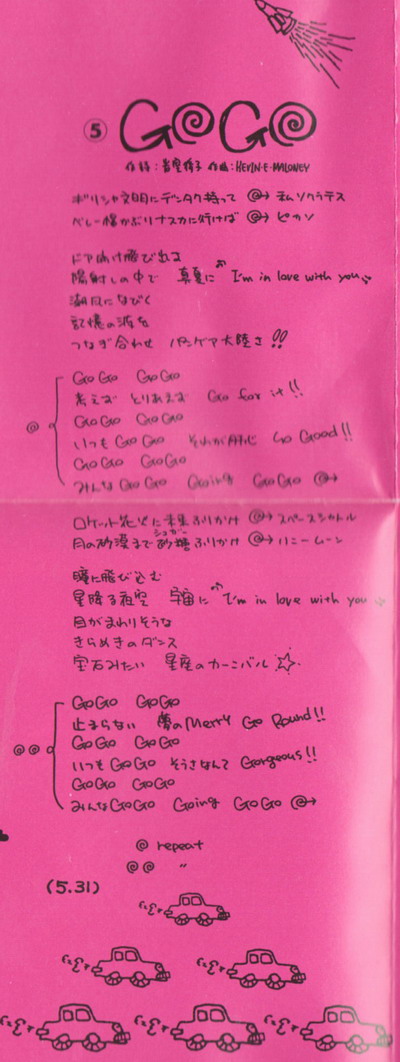 ⑤ GO GO
作詩: 作曲: KEVIN・E・MALONEY
ギリシャ文明にデンタク持って @→ 私ソクラテス
ベレー帽かぶりナスカに行けば @→ ピカソ
ドアあけ飛び出る
陽射しの中で 真夏に I'm in love with you
潮風になびく
記憶の波を
つなぎ合わせ パンゲア大陸さ!!
GO GO GO GO
考えず とりあえず Go for it!!
GO GO GO GO
いつも GO GO それが肝心 So Good!!
GO GO GO GO
みんな GO GO Going GO GO @→
@
ロケット花火に未来ふりかけ @→ スペースシャトル
月の砂漠まで砂糖ふりかけ @→ ハニームーン
シュガー
瞳に飛び込む
星降る夜空 宇宙に I'm in love with you
目がまわりそうな
きらめきのダンス
宝石みたい 星座のカーニバル
GO GO GO GO
止まらない 夢のMerry Go Round!!
GO GO GO GO
いつも GO GO そうさなんて Gorgeous!!
GO GO GO GO
みんな GO GO Going GO GO @→
@@
@ repeat
@@ 〃
(5.31)